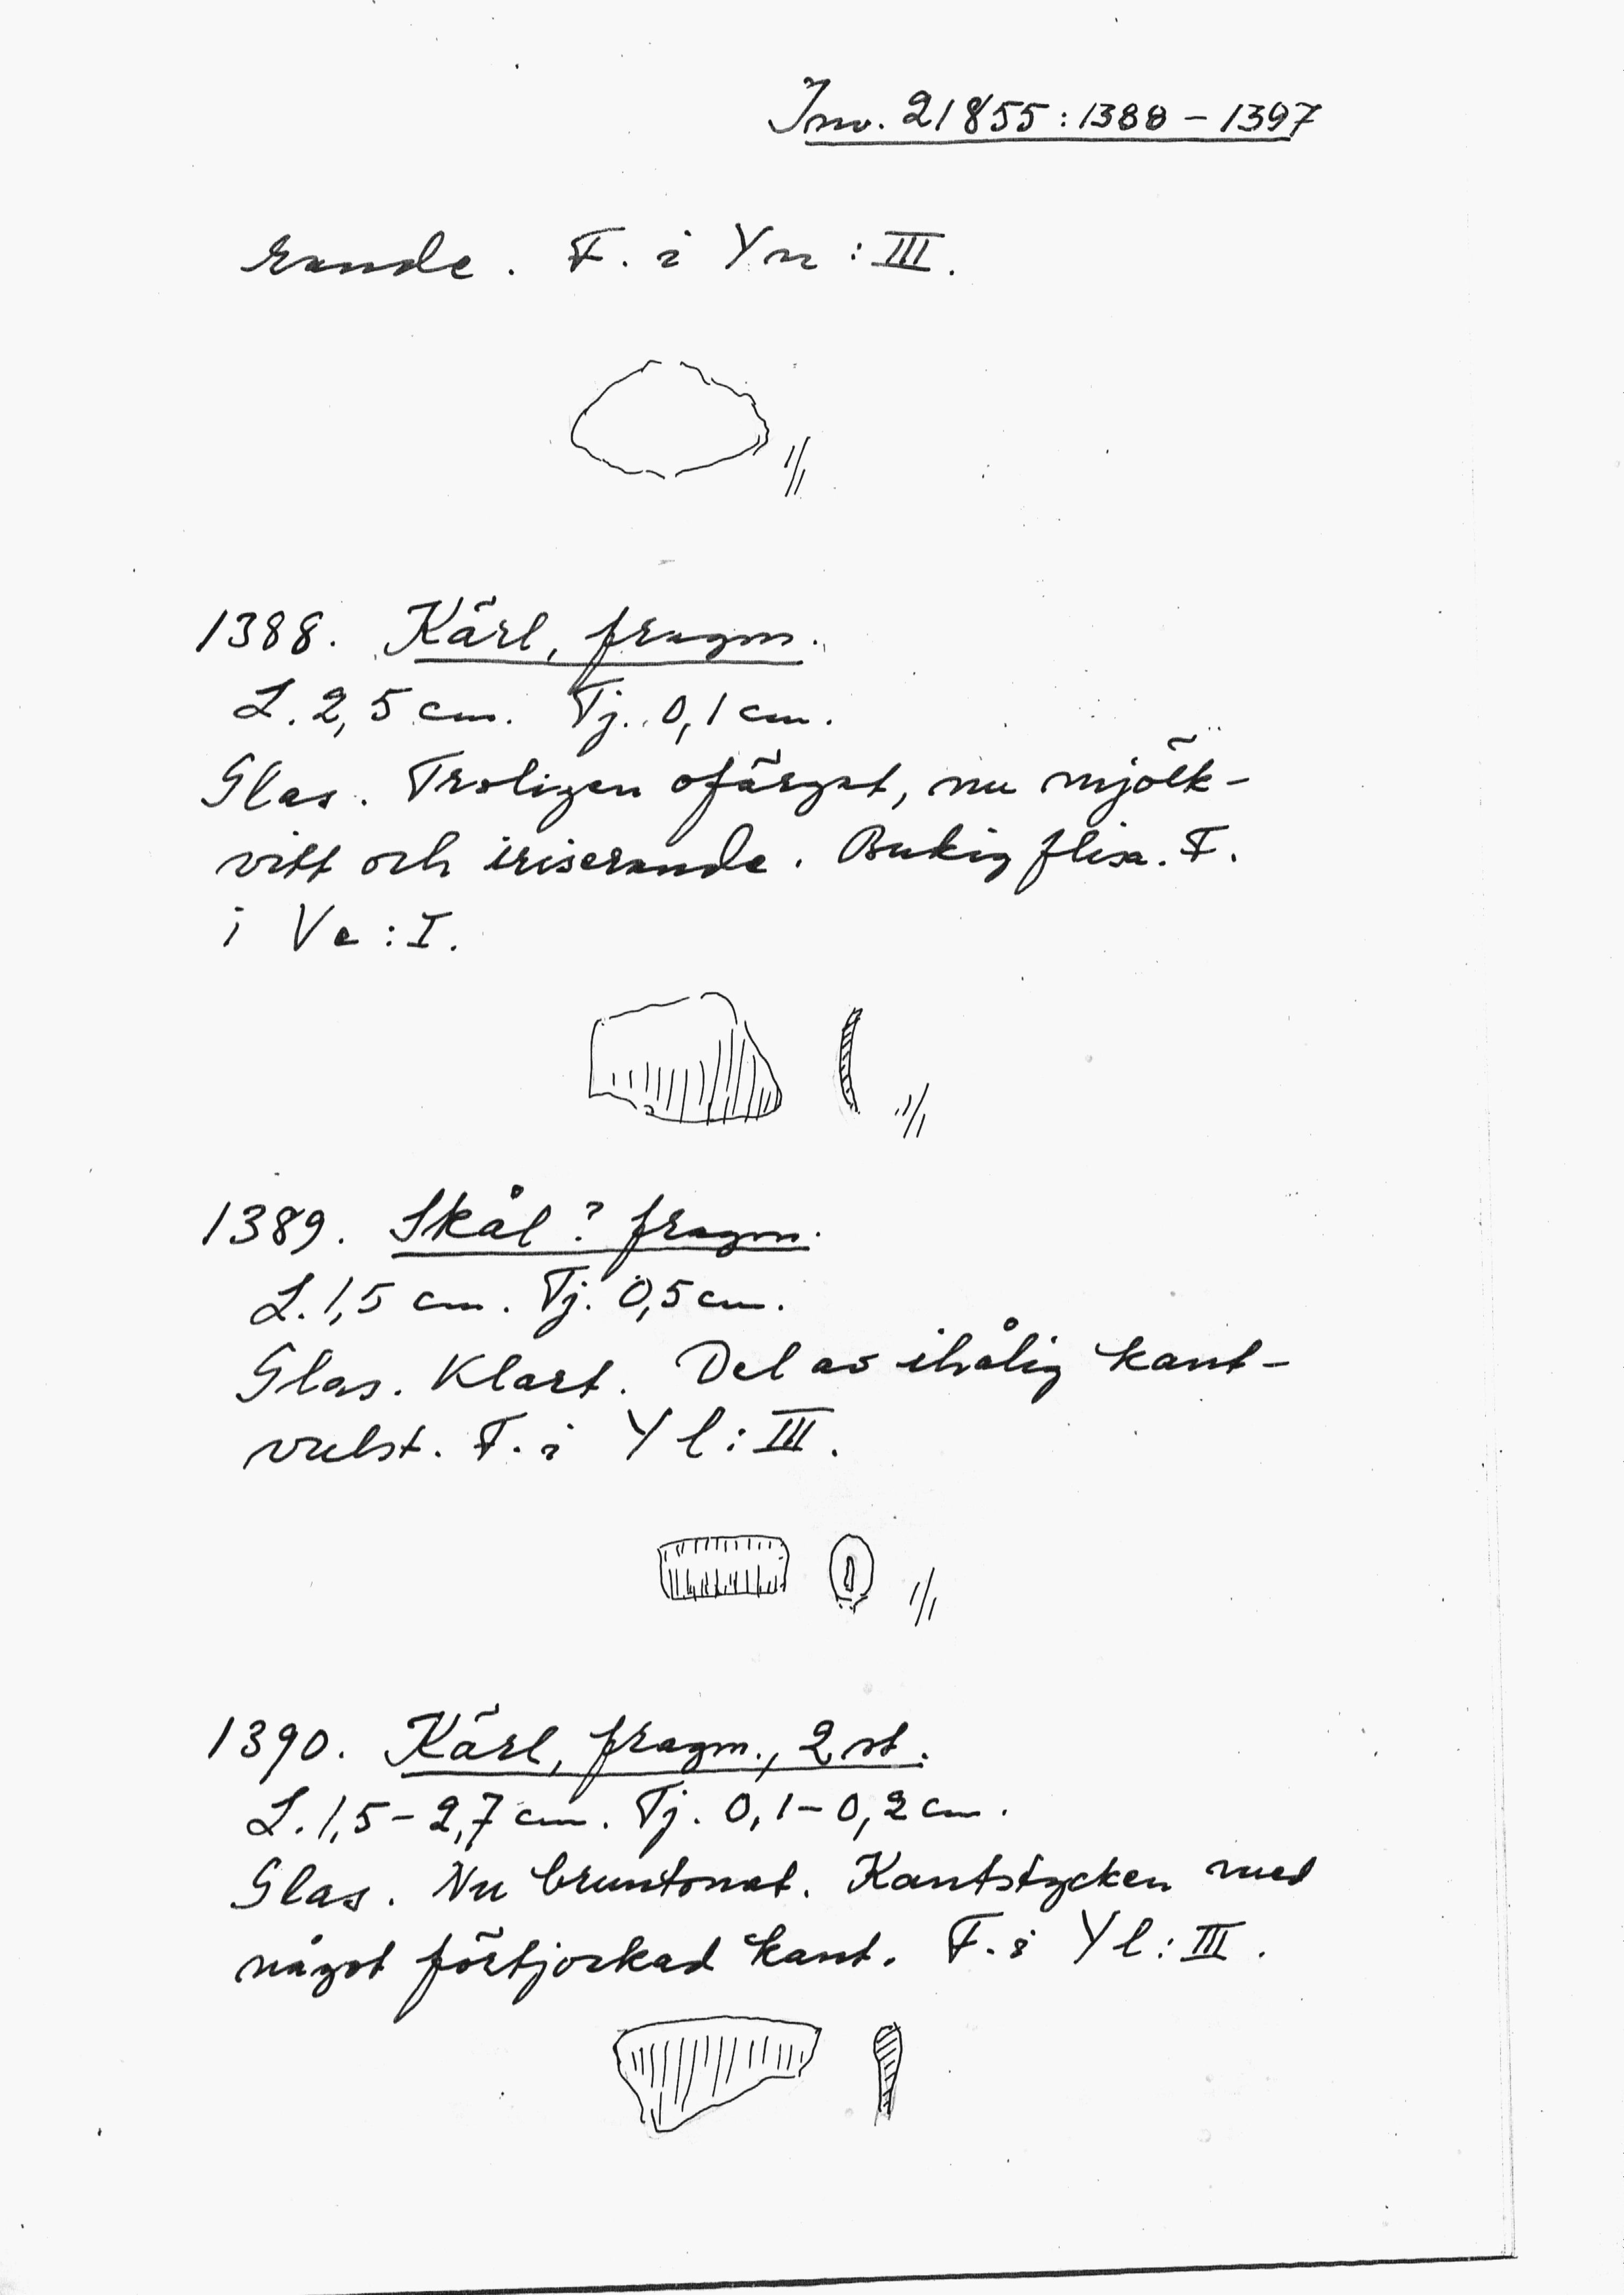 Inv. 21855:1388-1397
rande. F. i Yn:III.
1/1
1388. Kärl, fragm.
L. 2,5 cm. Tj. 0,1 cm.
Glas. Troligen ofärgat, nu mjölk-
vitt och iriserande. Bukig flisa. F.
i Ve:I.
1/1
1389. Skål? fragm.
L. 1,5 cm. Tj. 0,5 cm.
Glas. Klart. Del av ihålig kant-
vulst. F. i Yl:III.
1/1
1390. Kärl, fragm., 2 st.
L. 1,5-2,7 cm. Tj. 0,1-0,2 cm.
Glas. Nu bruntonat. Kantstycken med
något förtjockad kant. F. i Yl:III.